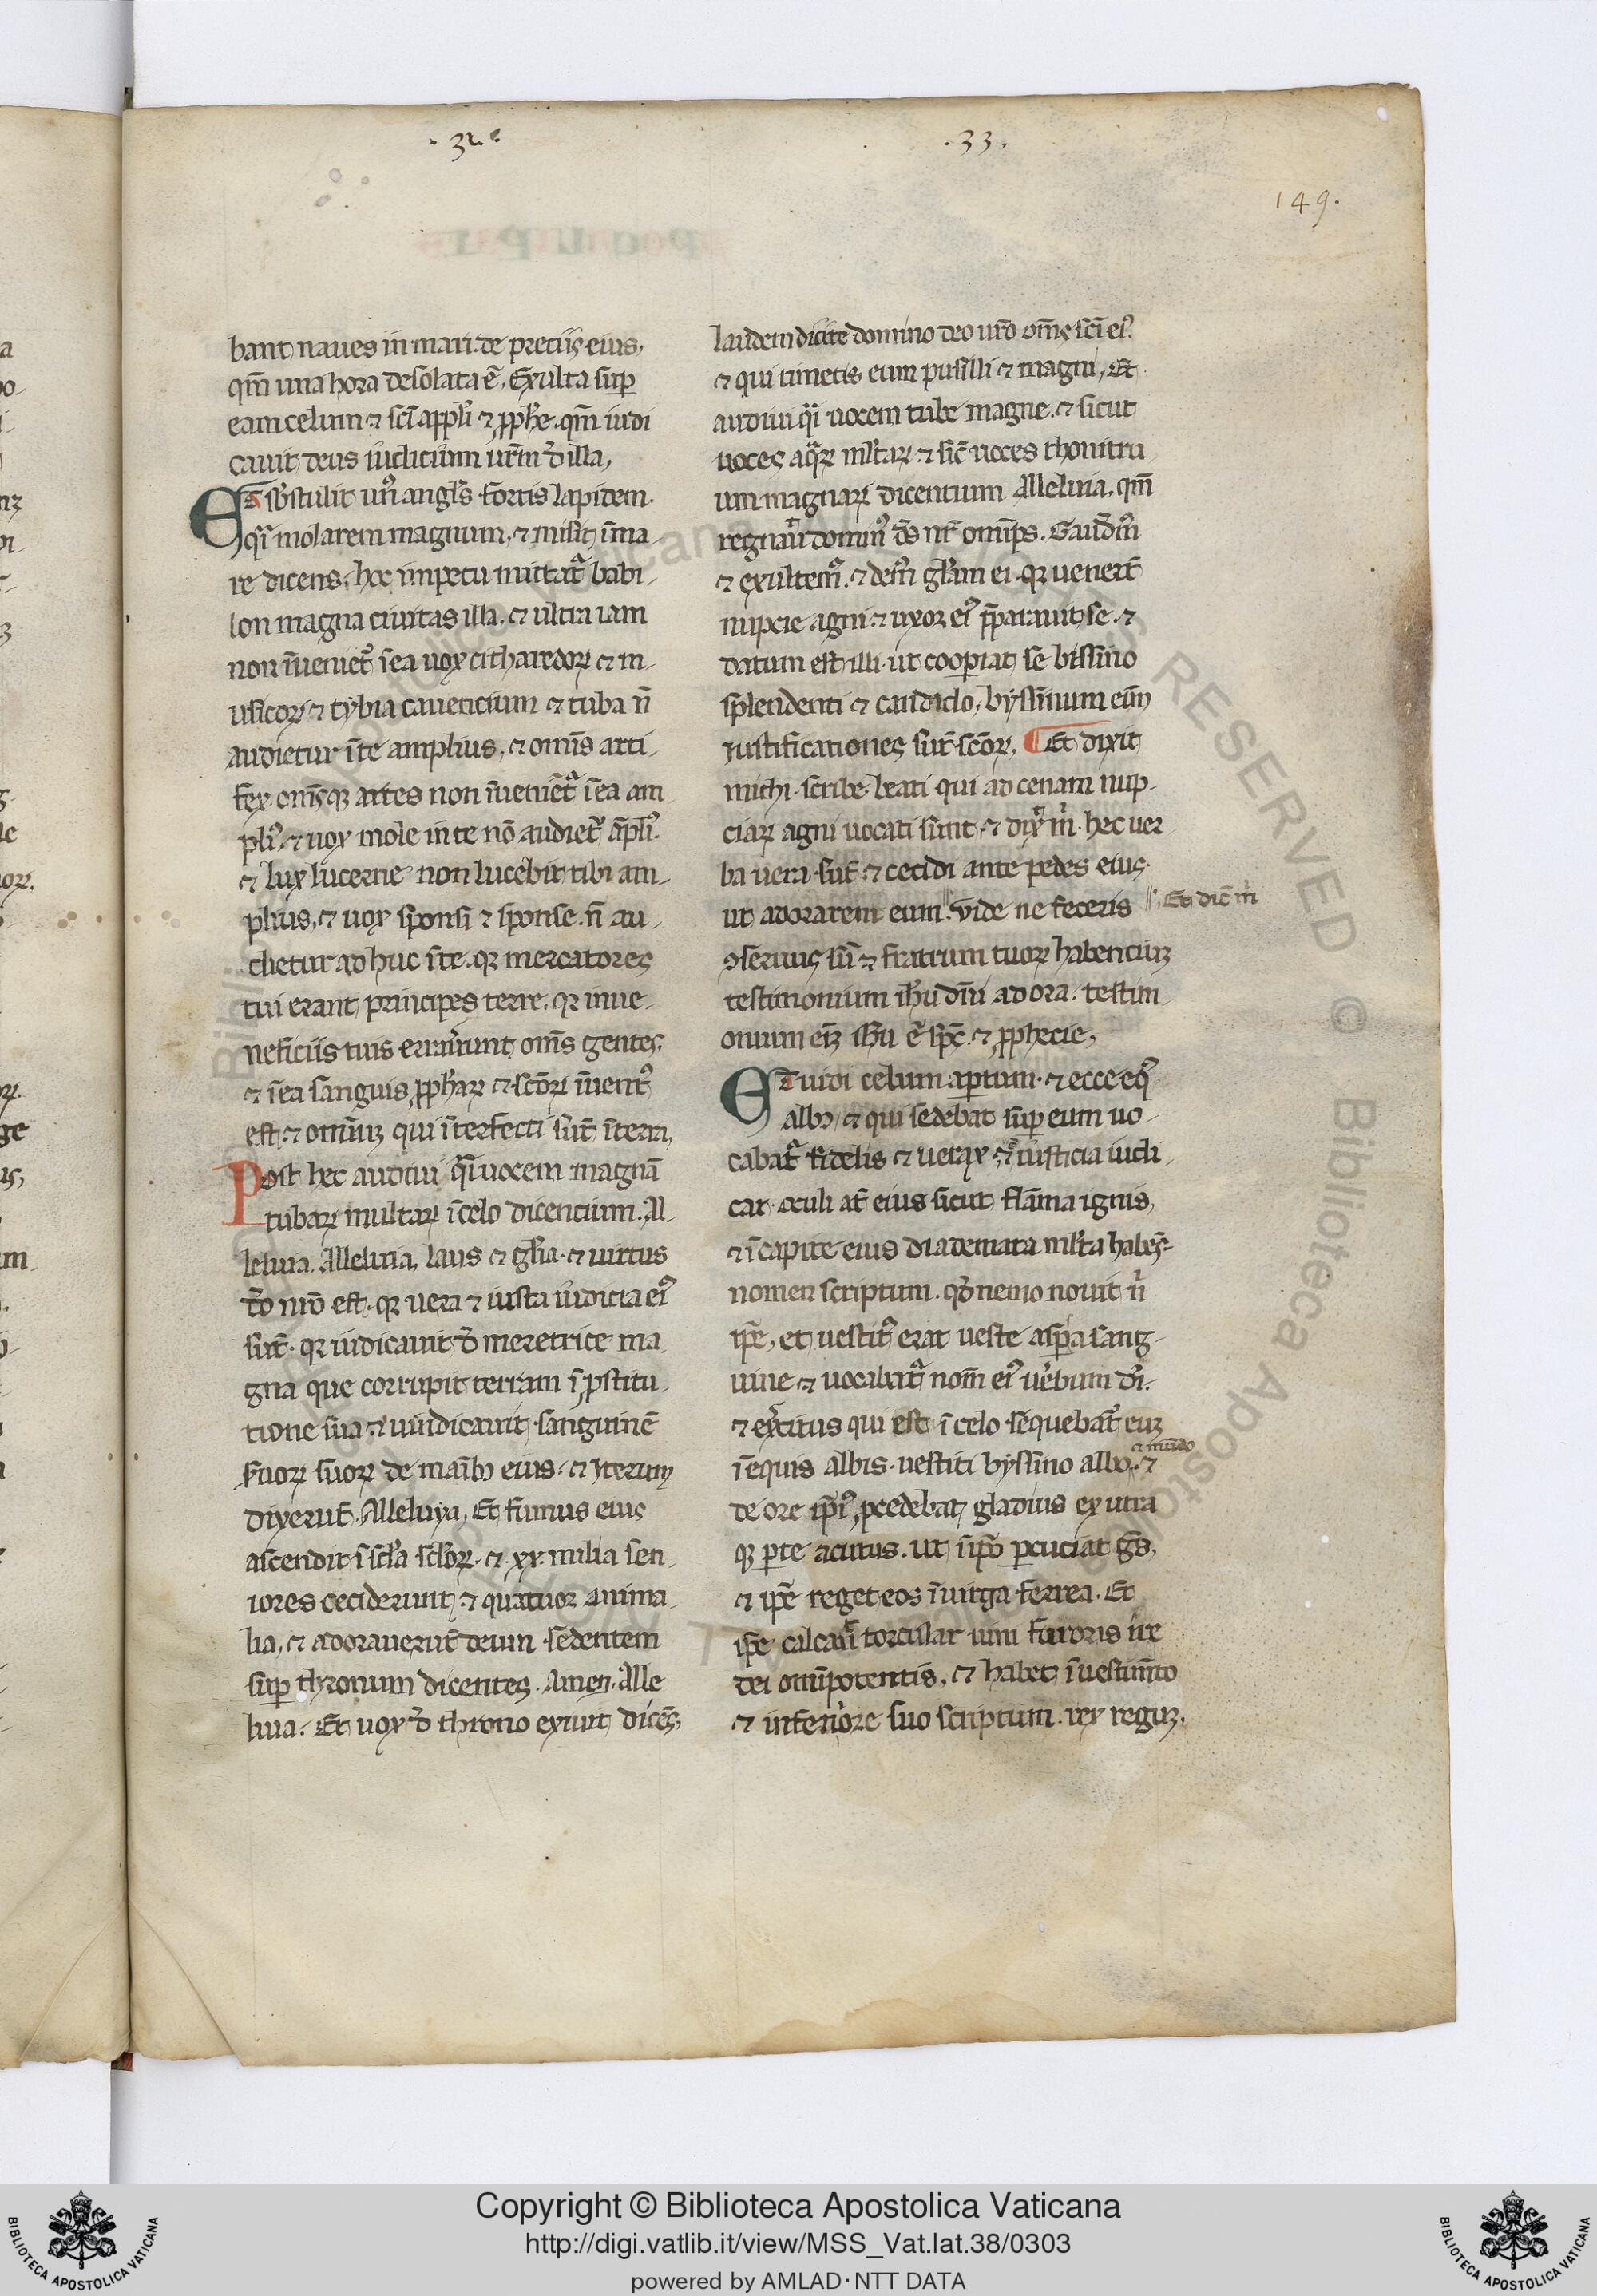 .32.
.33.
149.
bant naues in mari. de preciis eius,
qm̄ una hora desolata ē, Exulta sup̄
eam celum ⁊ sc̄i appl̓i ⁊ ꝓph̓e. qm̄ iudi
cauit deus iudicium ur̄m d̓ illa,
ET sb̓stulit un᾽ angl̓s fortis lapidem
qͣi molarem magnum, ⁊ misit ī ma-
re dicens, hoc impetu mittat᷑ babi-
lon magna ciuitas illa. ⁊ ultra iam
non īueniet᷑ ī ea uox citharedoꝝ ⁊ m-
usicoꝝ ⁊ tybia canentium ⁊ tuba n̄
audietur ī te amplius, ⁊ omīs arti-
fex. omīsqꝫ artes non īueniet᷑ ī ea am
pli᾽. ⁊ uox mole in te nō audiet᷑ āpli᾽.
⁊ lux lucerne non lucebit tibi am-
plius, ⁊ uox sponsi ⁊ sponse. n̄ au-
dietur ad huc ī te. qꝛ mercatores
tui erant principes terre. qꝛ in ue-
neficiis tuis errauerunt om̄s gentes.
⁊ ī ea sanguis ꝓph̓aꝝ ⁊ sc̄oꝝ īuent᾽
est. ⁊ omniūꝫ qui īterfecti sūt ī terra,
Post hec audiui qͣi uocem magnā
tubaꝝ multaꝝ ī celo dicentium. Al-
leluia. Alleluia, laus ⁊ gl̓ia. ⁊ uirtus
d̓o nr̄o est. qꝛ uera ⁊ iusta iudicia ei᾽
sūt. qꝛ iudicauit d̓ meretrice ma-
gna que corrupit terram ī ꝓstitu-
tione sua. ⁊ uindicauit sanguinē
suoꝝ suoꝝ de manibꝫ eius. ⁊ iterum
dixerūt. Alleluya, Et fumus eius
ascendit ī sc̄l̓a sc̄l̓oꝝ. ⁊ .xx. milia sen-
iores ceciderunt ⁊ quatuor anima-
lia, ⁊ adorauerūt deum sedentem
sup̄ thronum dicentes. Amen. Alle
luia. Et uox d̓ throno exiuit dicēs,
laudem dicite domino deo ur̄o om̄s sc̄i ei᾽.
⁊ qui timetis eum pusilli ⁊ magni, Et
audiui qͣi uocem tube magne. ⁊ sicut
uoces aqͣꝝ ml̓taꝝ ⁊ sic̄ uoces thonitru
um magnaꝝ dicentium Alleluia. qm̄
regnauit domin᾽ ds̄ nr̄ omīps. Gaudem᾽
⁊ exultem᾽. ⁊ dem᾽ gl̓iam ei. qꝛ uenerūt
nupcie agni ⁊ uxor ei᾽ p̄parauit se. ⁊
datum est illi. ut cooperiat se bissino
splendenti ⁊ candido, byssinum enim
iustificationes sūt sc̄oꝝ. ¶ Et dixit
michi. scribe. beati qui ad cenam nup-
ciaꝝ agni uocati sunt. ⁊ dixit m̓. hec uer
ba uera sūt. ⁊ cecidi ante pedes eius.
ut adorarem eum. Vide ne feceris
Et dic̄ m̓
ꝯseruus sū ⁊ fratrum tuoꝝ habentiuꝫ
testimonium ih̄u dm̄ adora. testim
onium enīꝫ ih̄u ē sp̄c ⁊ ꝓphecie,
ET uidi celum aꝑtum. ⁊ ecce eq᾽
albꝰ, ⁊ qui sedebat sup̄ eum uo-
cabat᷑ fidelis ⁊ uerax ⁊ iusticia iudi-
cat. oculi at̄ eius sicut flāma ignis,
⁊ ī capite eius diademata ml̓ta habēs-
nomen scriptum. qd̓ nemo nouit n̓
ip̄e, et uestit᾽ erat ueste aspersa sang-
uine ⁊ uocabat᷑ nom̄ ei᾽ uerbum di᾽.
⁊ exercitus qui est ī celo sequebat᷑ euꝫ
ī equis albis. uestiti byssino albo. ⁊
⁊ mundo
de ore ip̄i᾽ ꝓcedebat gladius ex utra
qꝫ ꝑte acutus. ut ī ipō ꝑcuciat gēs,
⁊ ip̄e reget eos ī uirga ferrea. Et
ipse calcauit torcular uini furoris ire
dei omīpotentis, ⁊ habet ī uestimēto
⁊ in femore suo scriptum. rex reguꝫ,
Copyright © Biblioteca Apostolica Vaticana
http://digi.vatlib.it/view/MSS_Vat.lat.38/0303
powered by AMLAD·NTT DATA
BIBLIOTECA APOSTOLICA VATICANA
BIBLIOTECA APOSTOLICA VATICANA